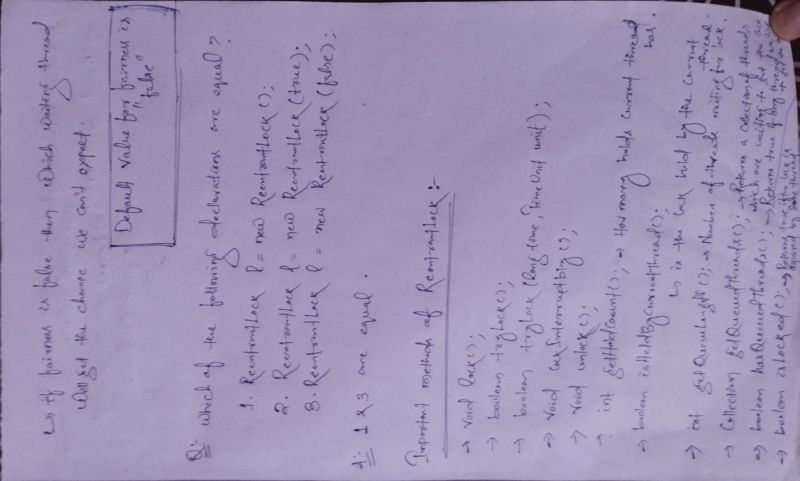 ↳ if fairness is false then which waiting thread
will get the chance we can't expect.
Default value for fairness is
"false"
Q: Which of the following declarations are equal?
1. ReentrantLock l = new ReentrantLock();
2. ReentrantLock l = new ReentrantLock(true);
3. ReentrantLock l = new ReentrantLock(false);
A: 1 & 3 are equal.
Important methods of ReentrantLock:-
→ void lock();
→ boolean tryLock();
→ boolean tryLock(long time, TimeUnit unit);
→ void lockInterruptibly();
→ void unlock();
→ int getHoldCount(); → How many holds current thread has.
→ boolean isHeldByCurrentThread();
↳ is the lock held by the current thread.
→ int getQueueLength(); → Number of threads waiting for lock.
→ Collection getQueuedThreads(); → Returns a collection of threads
which are waiting to get the lock
→ boolean hasQueuedThreads(); → Returns true if any thread
to get
→ boolean isLocked(); → Returns true if the lock is
acquired by some thread